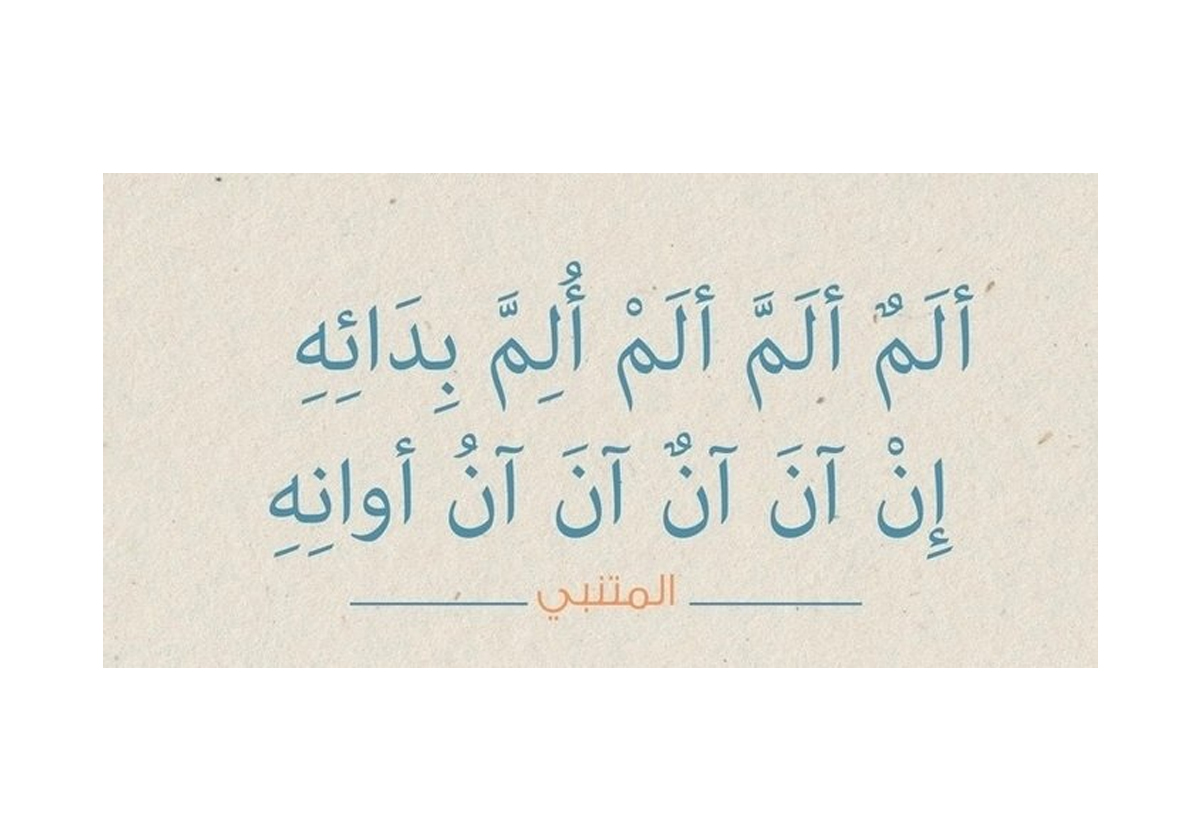 ألَمٌ ألَمَّ ألَمْ أُلِمَّ بِدَائِهِ
إِنْ آنَ آنٌ آنَ آنُ أوانِهِ
المتنبي